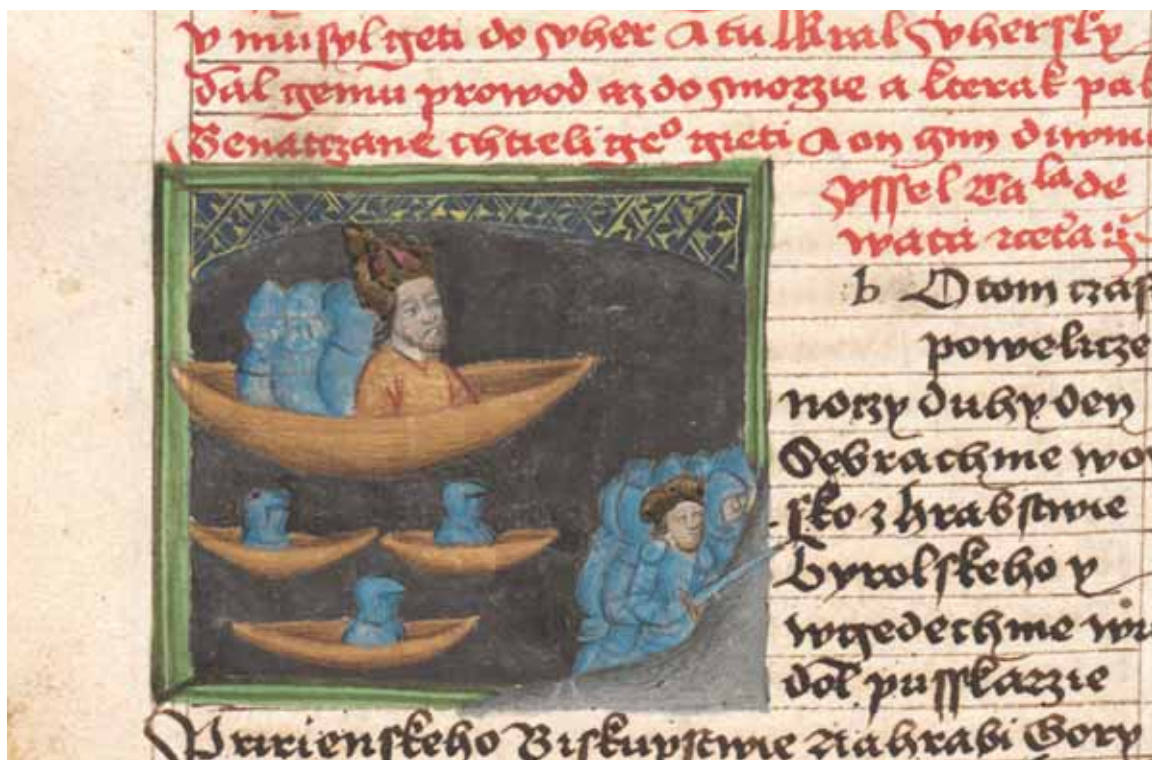 y musyl geti do vher A tu kral vhersky
dal gemu prowod az do morzie a kterak
Benatczane chtieli geº gieti A on gim
vssel
b O tom
powelicze
noczy duhy den
Sebrachme
sko z hrabstwie
Tyrolskeho y
wgedechme
dol pusskarzie
Pririenskeho Biskupstwie Na hrabi Gory